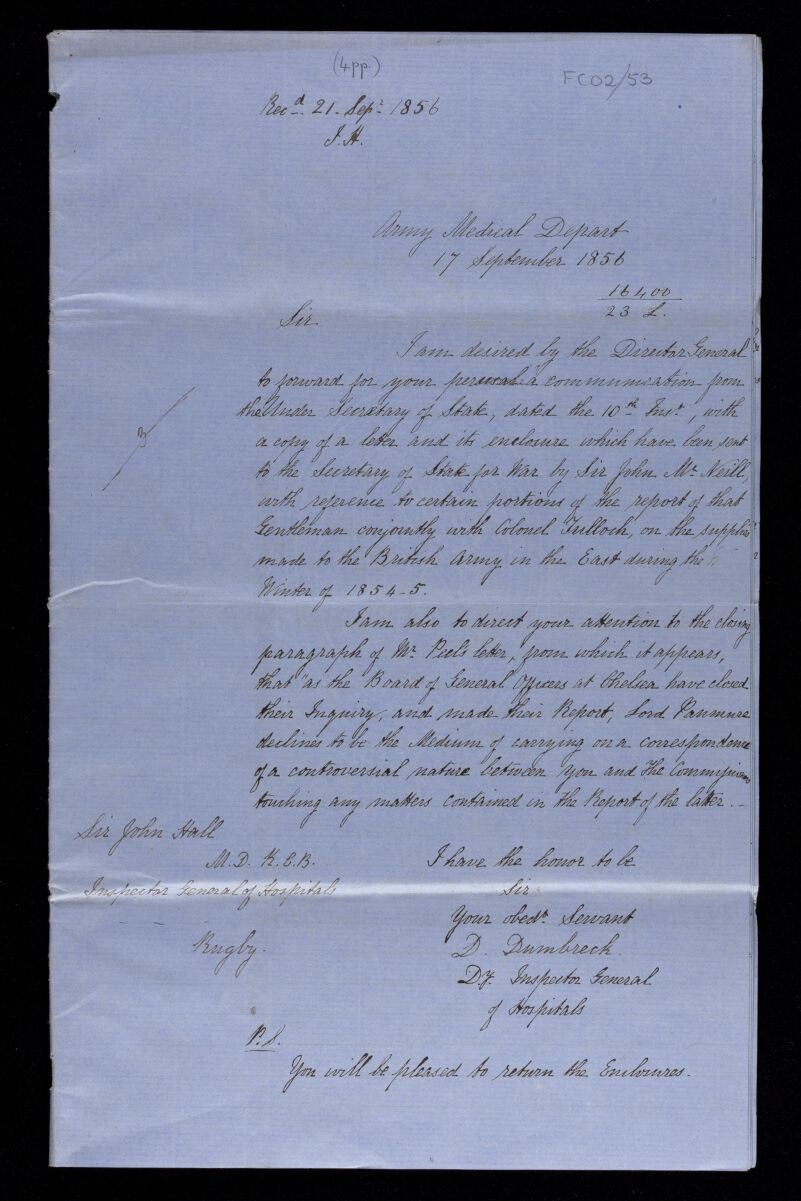 (4pp.)
FCO2/53
Recd. 21. Sepr. 1856
J.H.
Army Medical Depart
17 September 1856
16400
23 L.
Sir
I am desired by the Director General
to forward for your perusal a communication from
the Under Secretary of State, dated the 10th Inst., with
a copy of a letter and its enclosure which have been sent
to the Secretary of State for War by Sir John Mc Neill,
with reference to certain portions of the report of that
Gentleman conjointly with Colonel Tulloch, on the supplies
made to the British Army in the East during the
Winter of 1854-5.
3
I am also to direct your attention to the closing
paragraph of Mr. Peel's letter, from which it appears,
that "as the Board of General Officers at Chelsea have closed
their Inquiry, and made their Report, Lord Panmure
declines to be the Medium of carrying on a correspondence
of a controversial nature between you and the Commissioners
touching any matters contained in the Report of the latter. _
Sir John Hall
M.D. K.C.B.
Inspector General of Hospitals
Rugby.
I have the honor to be
Sir
Your obedt. Servant
D. Dumbreck.
Dy. Inspector General
of Hospitals
P.S.
You will be pleased to return the Enclosures.